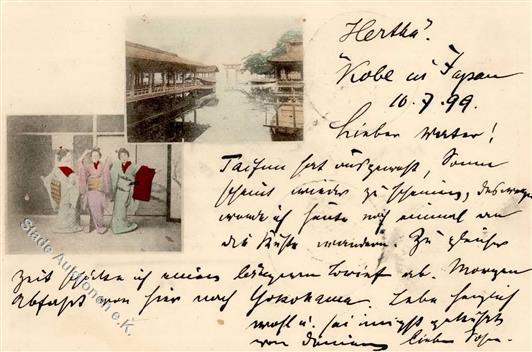 "Hertha".
"Kobe in Japan
10.7.99.
Lieber Vater!
Taifun hat ausgewest, Sonne
scheint wieder zu scheinen, deswegen
werde ich heute noch einmal an
die Küste wandern. Zu gleicher
Zeit schicke ich einen längeren Brief ab. Morgen
Abfahrt von hier nach Yokohama. Lebe herzlich
wohl u. sei innigst geküßt
von Deinem lieben Sohn.
Stade Auktionen e.K.